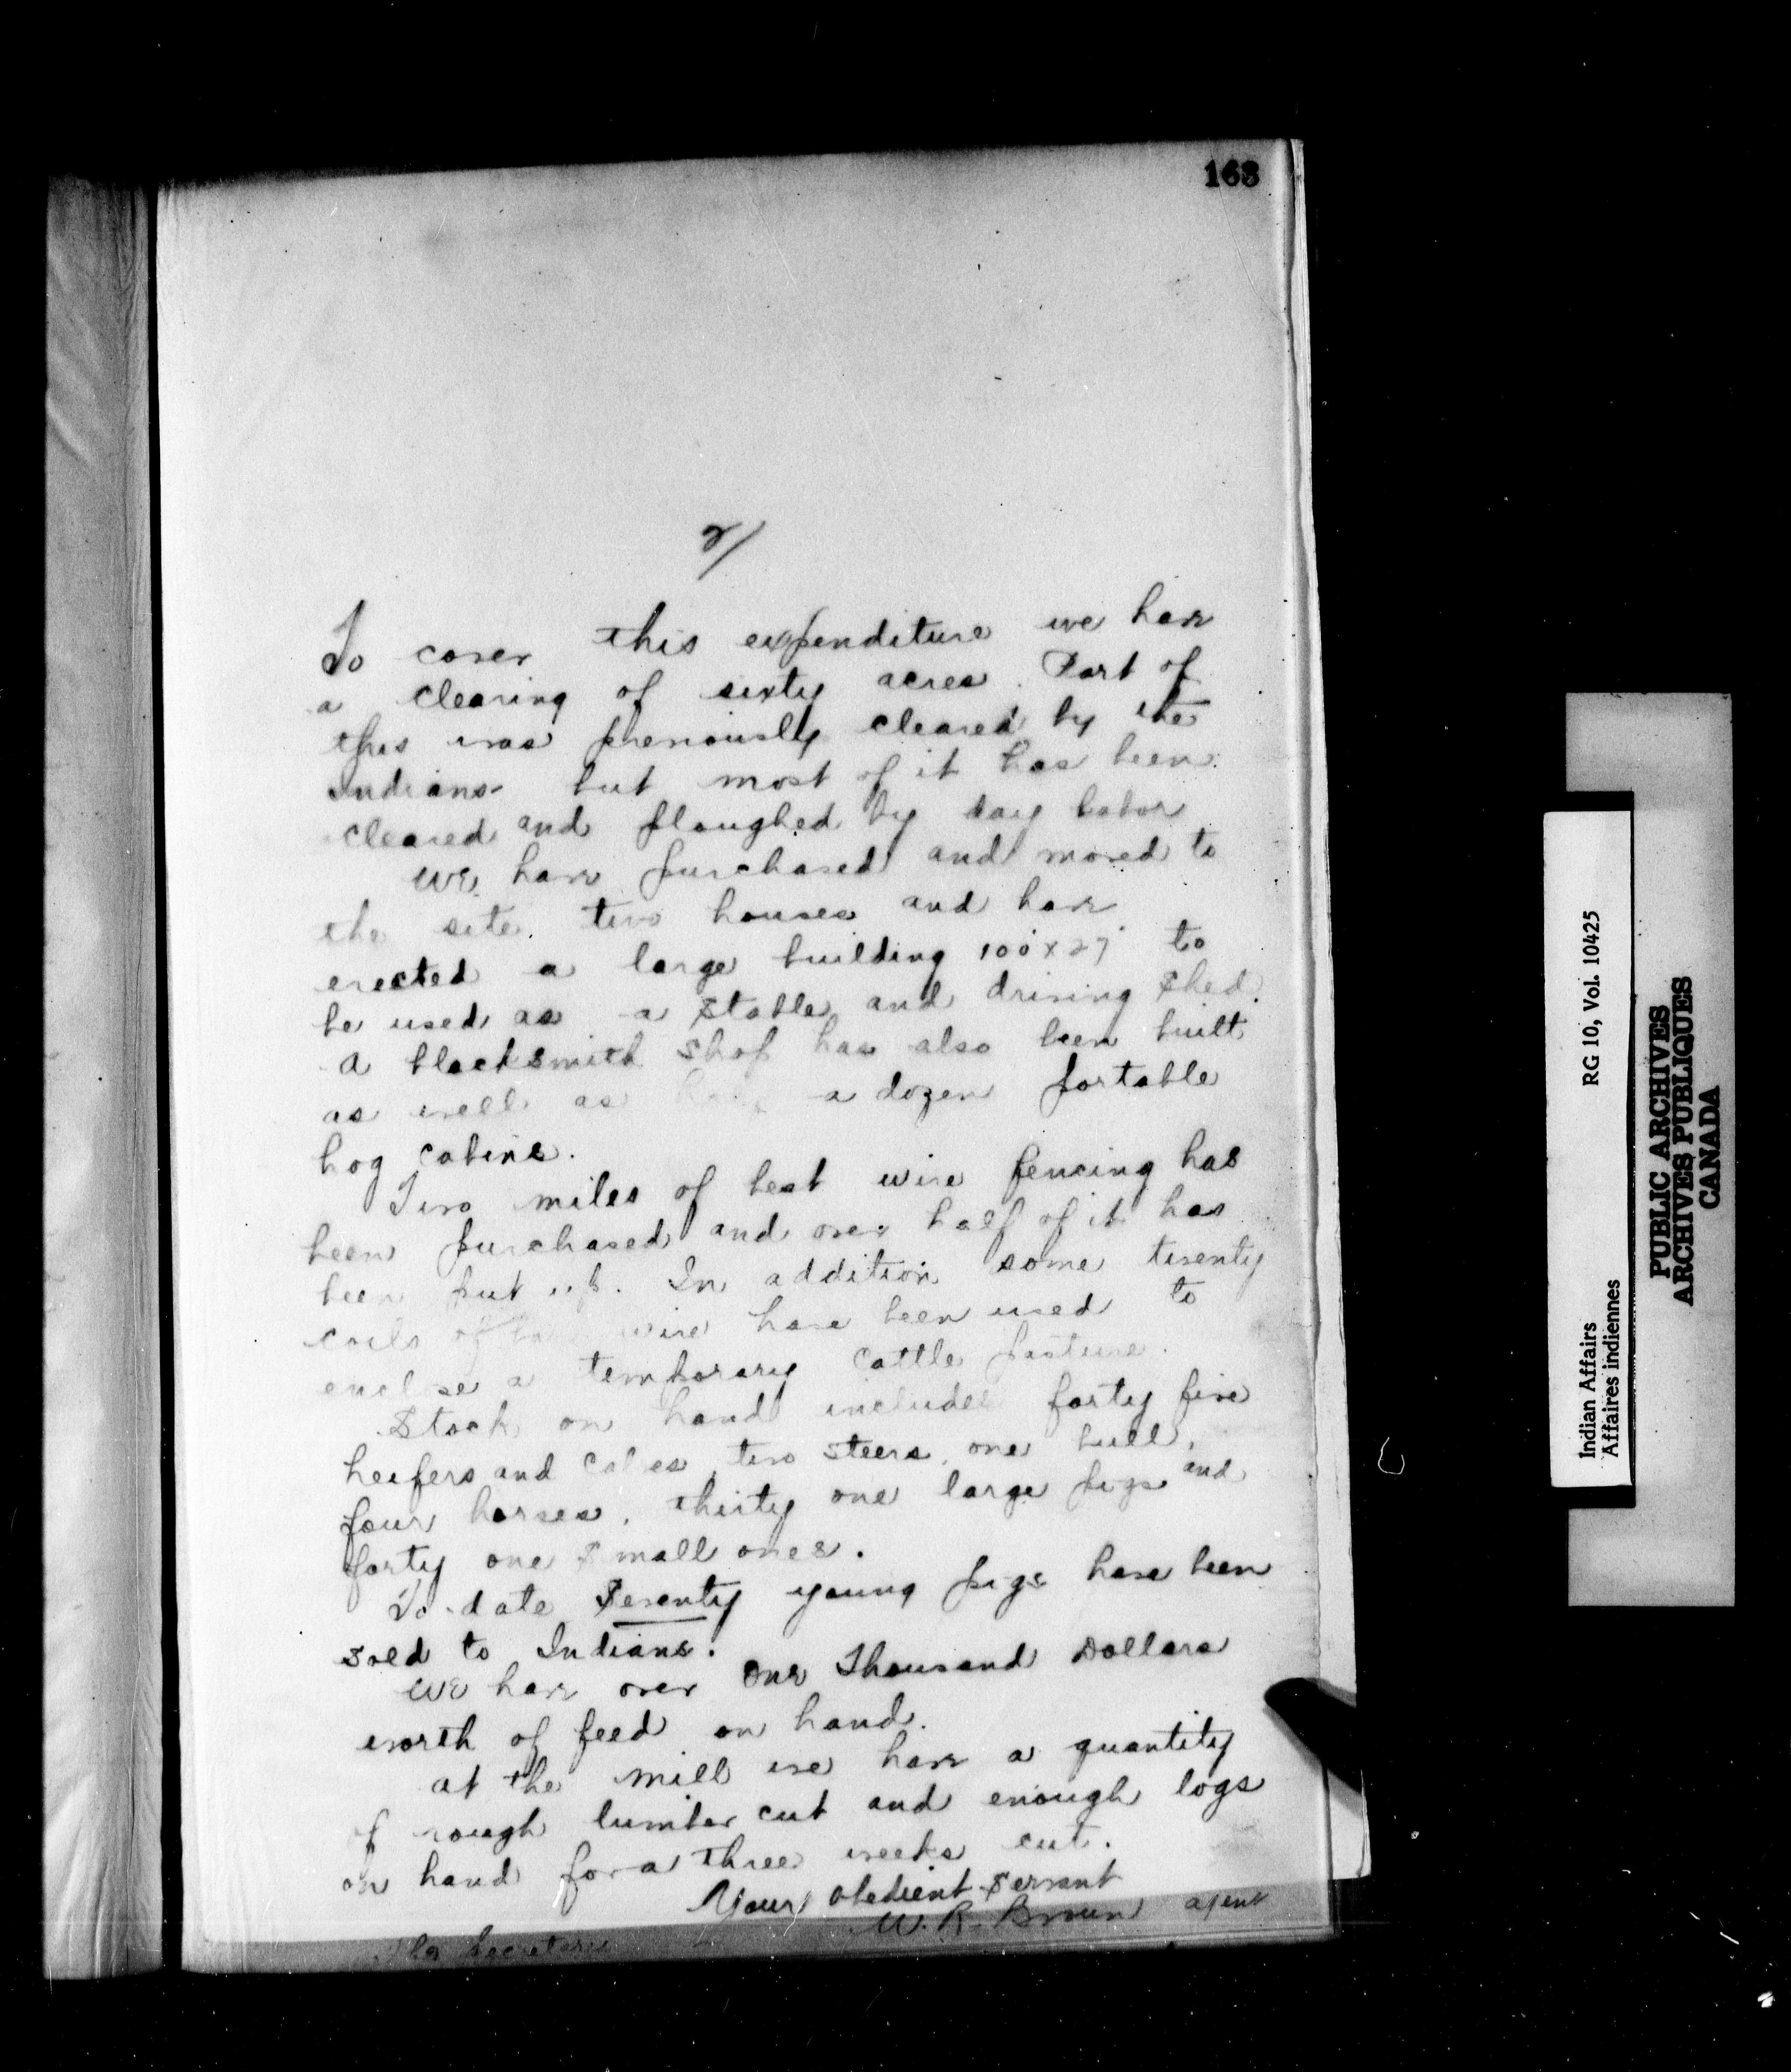 163
2/
To cover this expenditure we have
a clearing of sixty acres. Part of
this was previously cleared by the
Indians but most of it has been
cleared and ploughed by day labor
We have purchased and moved to
the site two houses and have
erected a large building 100' x 27' to
be used as a stable and driving shed.
A blacksmith shop has also been built
as well as a dozen portable
hog cabins.
Two miles of best wire fencing has
been purchased and over half of it has
been put up. In addition some twenty
coils of wire have been used to
enclose a temporary cattle pasture.
Stock on hand includes forty five
heifers and calves, two steers, one bull,
four horses, thirty one large pigs and
forty one small ones.
To date Seventy young pigs have been
sold to Indians.
We have over One Thousand Dollars
worth of feed on hand.
At the mill we have a quantity
of rough lumber cut and enough logs
on hand for a three weeks cut.
Your obedient Servant
W. R. Brown agent
The Secretary
Indian Affairs RG 10, Vol. 10425
Affaires indiennes
PUBLIC ARCHIVES
ARCHIVES PUBLIQUES
CANADA